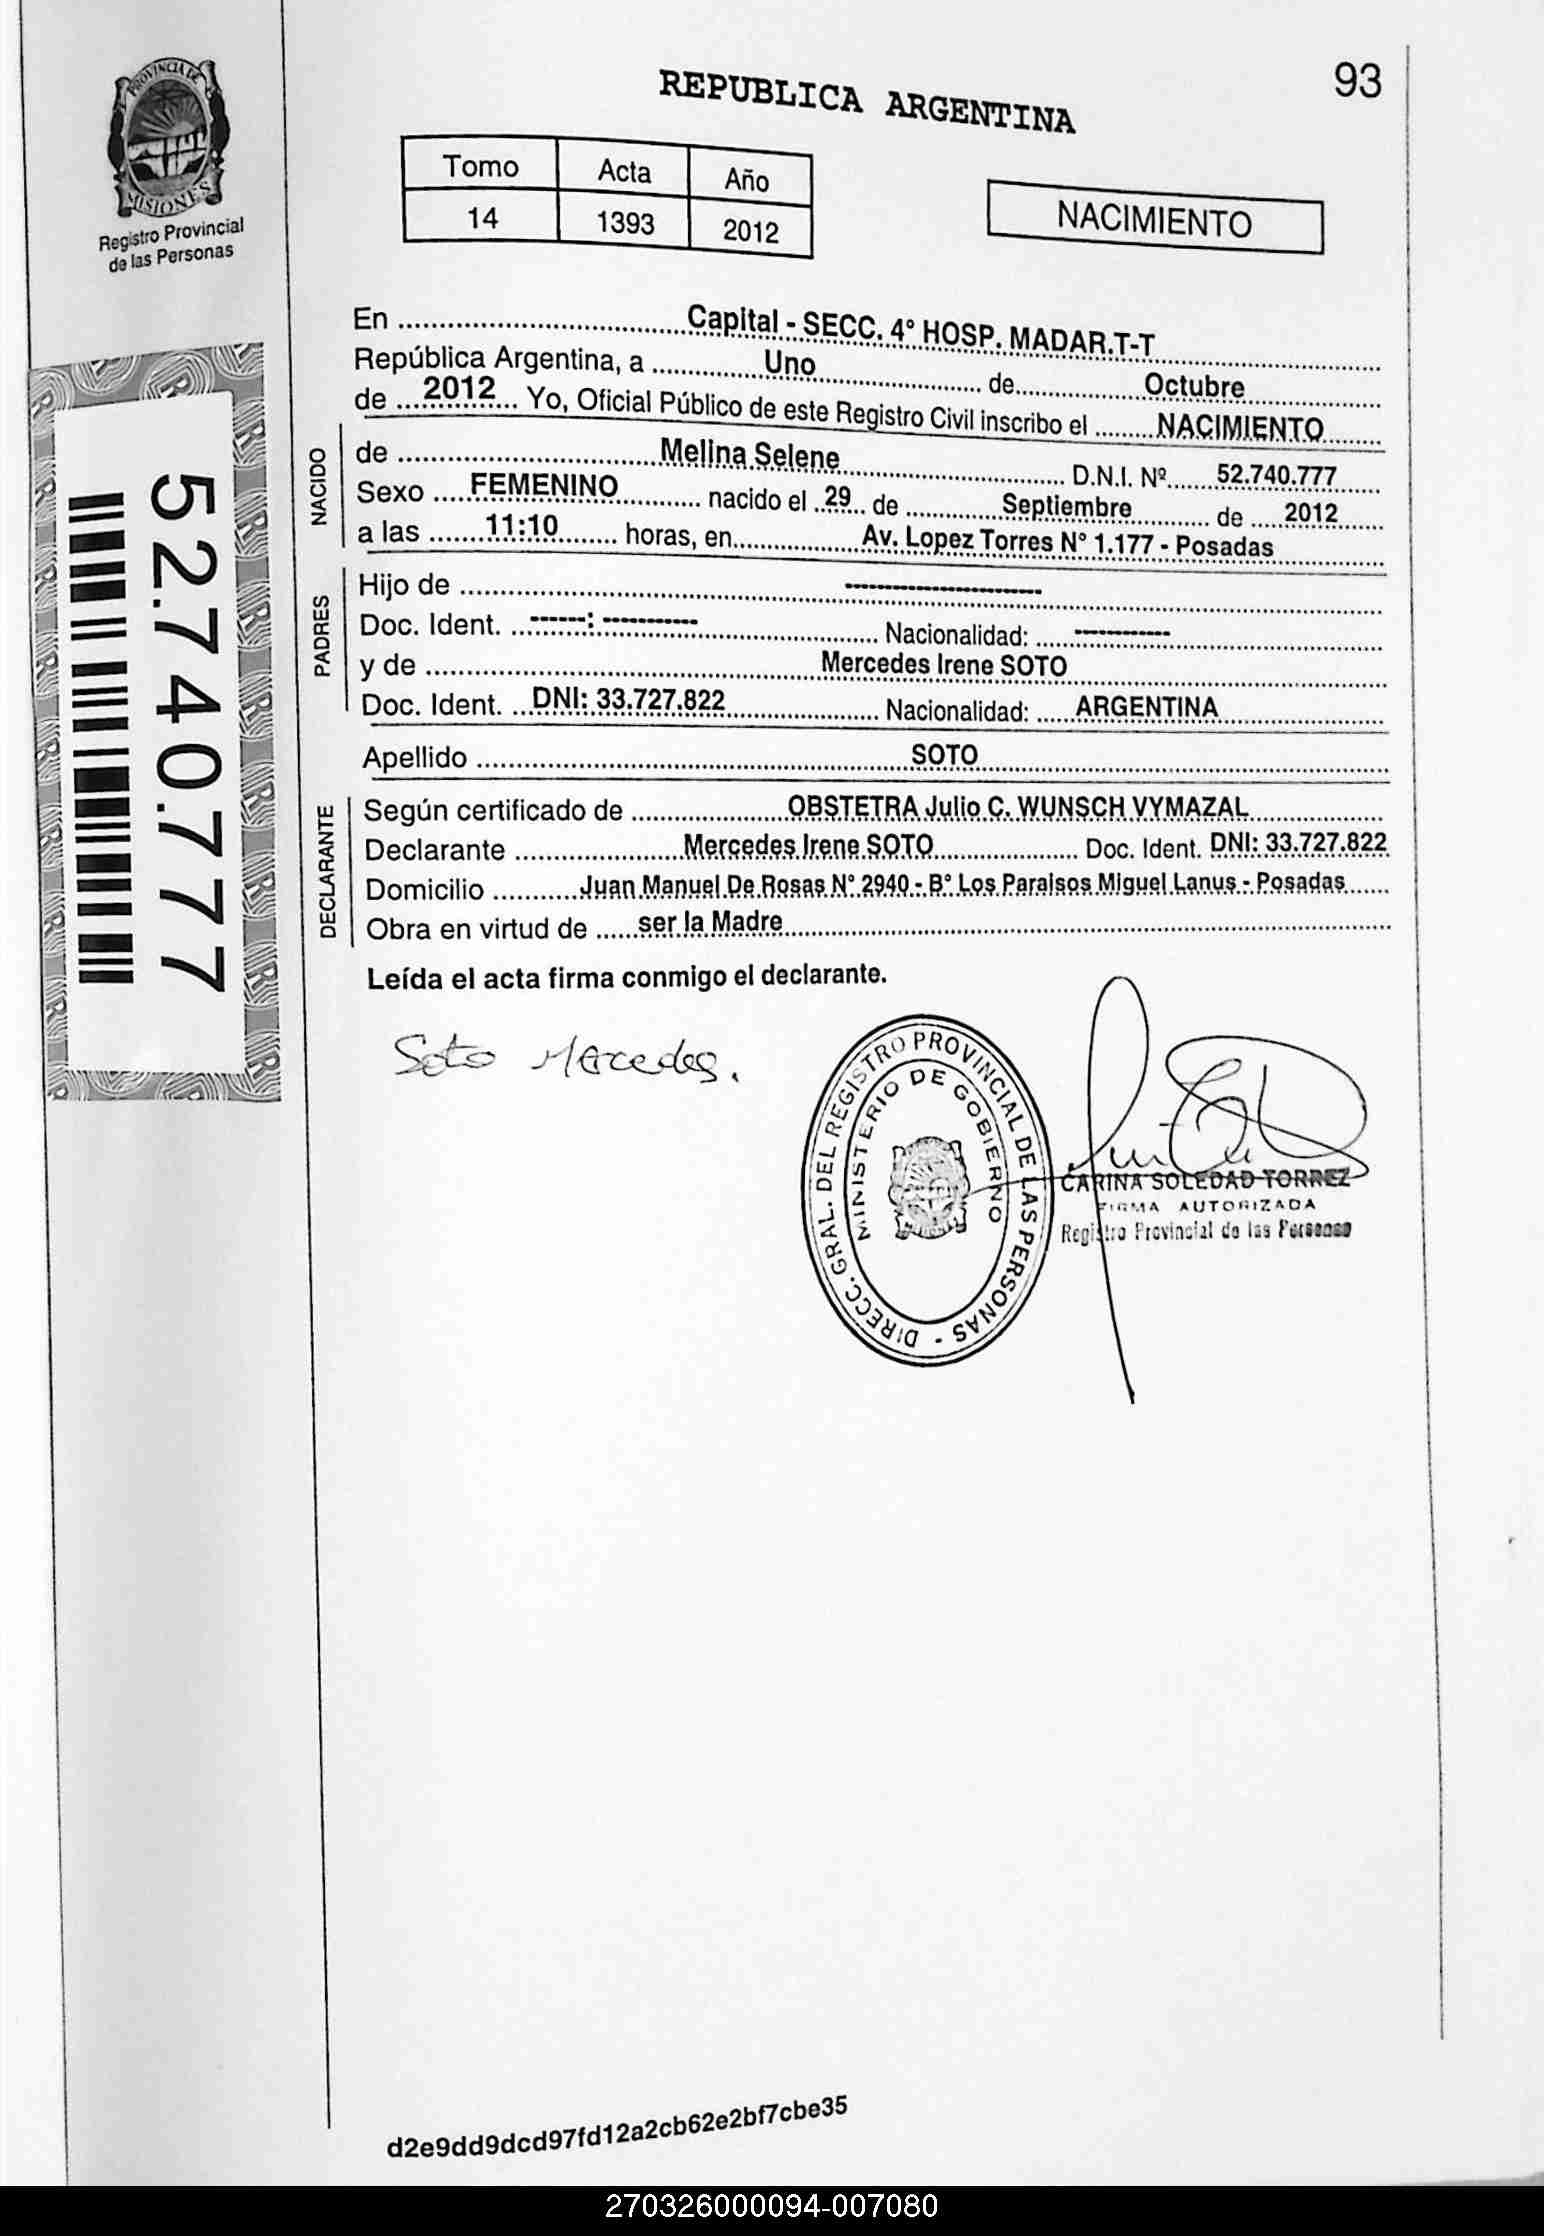 93
REPUBLICA ARGENTINA
PROVINCIA DE
MISIONES
Registro Provincial
de las Personas
Tomo Acta Año
14 1393 2012
NACIMIENTO
En Capital - SECC. 4° HOSP. MADAR.T-T
República Argentina, a Uno de Octubre
de 2012 Yo, Oficial Público de este Registro Civil inscribo el NACIMIENTO
NACIDO
de Melina Selene D.N.I. Nº 52.740.777
Sexo FEMENINO nacido el 29 de Septiembre de 2012
a las 11:10 horas, en Av. Lopez Torres N° 1.177 - Posadas
PADRES
Hijo de ----------------------
Doc. Ident. ------: ----------- Nacionalidad: -----------
y de Mercedes Irene SOTO
Doc. Ident. DNI: 33.727.822 Nacionalidad: ARGENTINA
Apellido SOTO
DECLARANTE
Según certificado de OBSTETRA Julio C. WUNSCH VYMAZAL
Declarante Mercedes Irene SOTO Doc. Ident. DNI: 33.727.822
Domicilio Juan Manuel De Rosas N° 2940 - B° Los Paraisos Miguel Lanus - Posadas
Obra en virtud de ser la Madre
Leída el acta firma conmigo el declarante.
52.740.777
Soto Mercedes.
DIRECC. GRAL. DEL REGISTRO PROVINCIAL DE LAS PERSONAS -
MINISTERIO DE GOBIERNO
CARINA SOLEDAD TORREZ
FIRMA AUTORIZADA
Registro Provincial de las Personas
d2e9dd9dcd97fd12a2cb62e2bf7cbe35
270326000094-007080